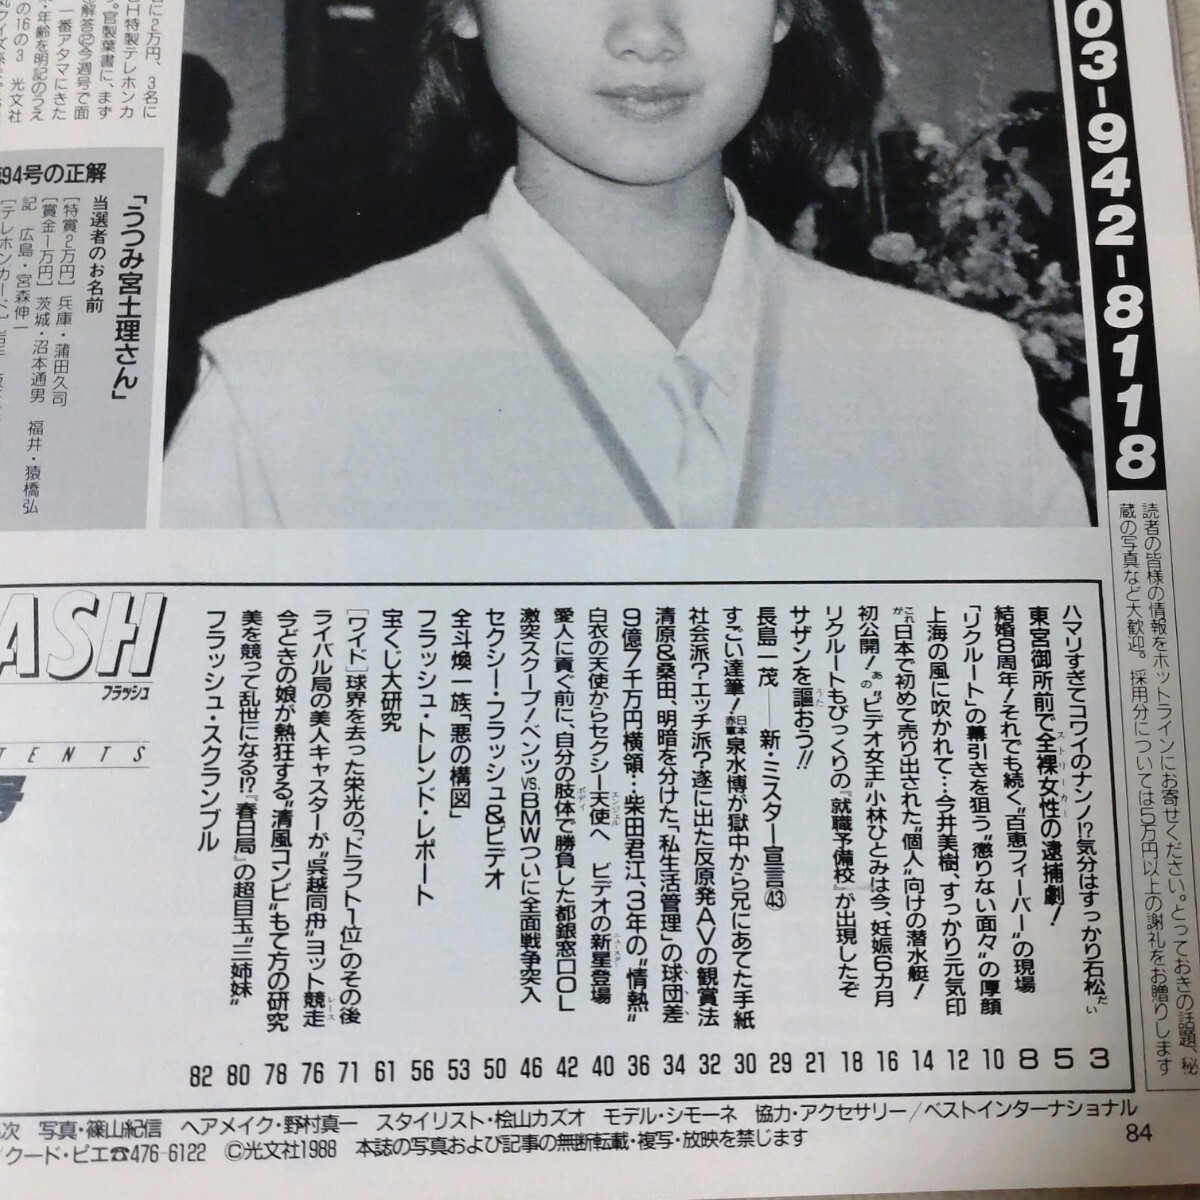 03-942-8118
読者の皆様の情報をホットラインにお寄せください。とっておきの話題、秘
蔵の写真など大歓迎。採用分については5万円以上の謝礼をお贈りします
に2万円、3名に
H特製テレホンカ
。官製葉書に、まず
解答②今週号で面
一番アタマにきた
・年齢を明記のうえ
の16の3 光文社
94号の正解
「うつみ宮土理さん」
当選者のお名前
[特賞2万円] 兵庫・蒲田久司
[賞金1万円] 茨城・沼本通男 福井・猿橋弘
記 広島・宮森伸一
[テレホンカード]
ASH
フラッシュ
TENTS
号
ハマリすぎてコワイのナンノ!?気分はすっかり石松だい 3
東宮御所前で全裸女性ストリーカーの逮捕劇! 5
結婚8周年!それでも続く“百恵フィーバー”の現場 8
「リクルート」の幕引きを狙う“懲りない面々”の厚顔 10
上海の風に吹かれて…今井美樹、すっかり元気印 12
これが日本で初めて売り出された“個人”向けの潜水艇! 14
初公開!あの“ビデオ女王”小林ひとみは今、妊娠6カ月 16
リクルートもびっくりの『就職予備校』が出現したぞ 18
サザンを謳うたおう!! 21
長島一茂――新・ミスター宣言㊸ 29
すごい達筆!日本赤軍泉水博が獄中から兄にあてた手紙 30
社会派?エッチ派?遂に出た反原発AVの観賞法 32
清原&桑田、明暗を分けた「私生活管理」の球団差 34
9億7千万円横領…柴田君江、3年の“情熱” 36
白衣の天使からセクシー天使エンジェルへ ビデオの新星ニュースター登場 40
愛人に貢ぐ前に、自分の肢体ボディで勝負した都銀窓口OL 42
激突スクープ!ベンツvs.BMWついに全面戦争突入 46
セクシー・フラッシュ&ビデオ 50
全斗煥一族「悪の構図」 53
フラッシュ・トレンド・レポート 56
宝くじ大研究 61
[ワイド]球界を去った栄光の「ドラフト1位」のその後 71
ライバル局の美人キャスターが“呉越同舟”ヨット競走レース 76
今どきの娘が熱狂する“清風コンビ”もて方の研究 78
美を競って乱世になる!?『春日局』の超目玉“三姉妹” 80
フラッシュ・スクランブル 82
次 写真・篠山紀信 ヘアメイク・野村真一 スタイリスト・桧山カズオ モデル・シモーネ 協力・アクセサリー/ベストインターナショナル
/クード・ピエ☎476-6122 ©光文社1988 本誌の写真および記事の無断転載・複写・放映を禁じます
84